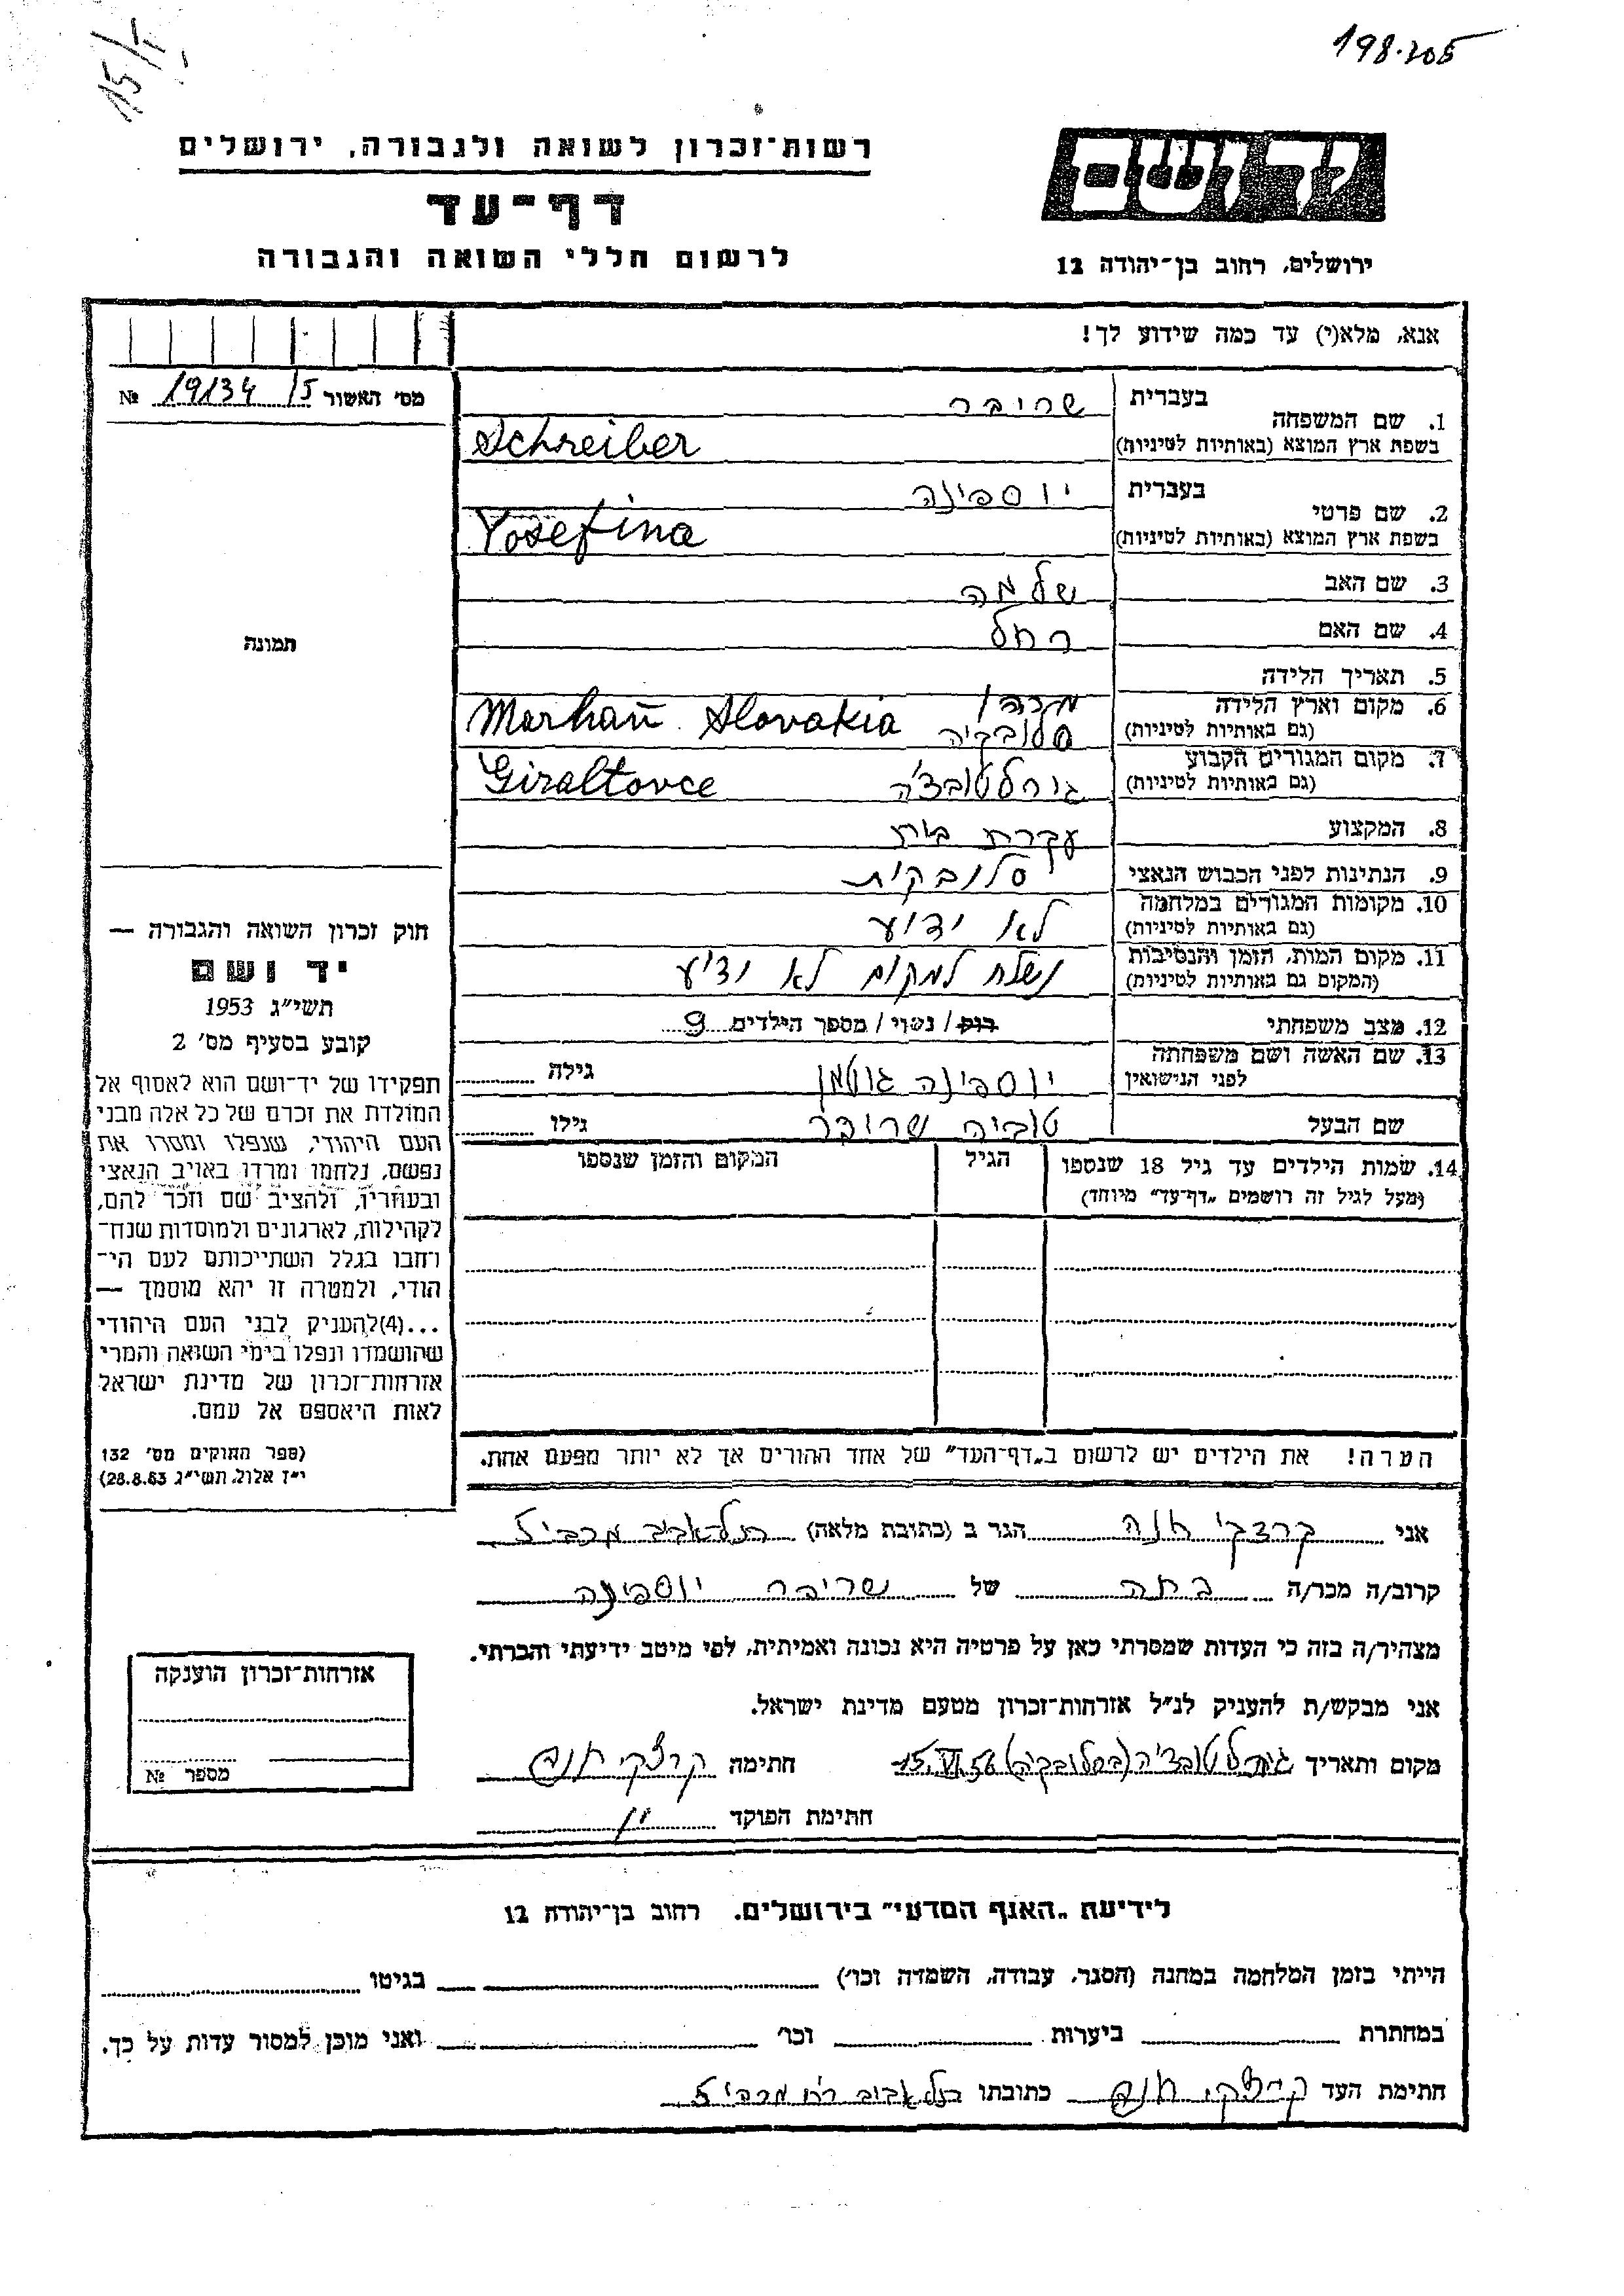 198.205
15/I
רשות־זכרון לשואה ולגבורה, ירושלים
דף־עד
לרשום חללי השואה והגבורה
יד ושם
ירושלים, רחוב בן־יהודה 12
אנא, מלא(י) עד כמה שידוע לך!
מס׳ האשור 15 19134 №
1. שם המשפחה בעברית שריבר
בשפת ארץ המוצא (באותיות לטיניות) Schreiber
2. שם פרטי בעברית יוספינה
בשפת ארץ המוצא (באותיות לטיניות) Yosefina
3. שם האב שלמה
4. שם האם רחל
5. תאריך הלידה
6. מקום וארץ הלידה מרהן
(גם באותיות לטיניות) סלובקיה Marhaň Slovakia
7. מקום המגורים הקבוע
(גם באותיות לטיניות) גירלטובצ׳ה Giraltovce
8. המקצוע עקרת בית
9. הנתינות לפני הכבוש הנאצי סלובקית
10. מקומות המגורים במלחמה
(גם באותיות לטיניות) לא ידוע
11. מקום המות, הזמן והנסיבות
(המקום גם באותיות לטיניות) נשלח למקום לא ידוע
12. מצב משפחתי רוק/נשוי/מספר הילדים 9
13. שם האשה ושם משפחתה
לפני הנישואין יוספינה גוטמן גילה
שם הבעל טוביה שרובר גילו
14. שמות הילדים עד גיל 18 שנספו הגיל המקום והזמן שנספו
(מעל לגיל זה רושמים „דף־עד״ מיוחד)
הערה! את הילדים יש לרשום ב„דף־העד״ של אחד ההורים אך לא יותר מפעם אחת.
תמונה
חוק זכרון השואה והגבורה —
יד ושם
תשי״ג 1953
קובע בסעיף מס׳ 2
תפקידו של יד־ושם הוא לאסוף אל
המולדת את זכרם של כל אלה מבני
העם היהודי, שנפלו ומסרו את
נפשם, נלחמו ומרדו באויב הנאצי
ובעוזריו, ולהציב שם וזכר להם,
לקהילות, לארגונים ולמוסדות שנח־
רחבו בגלל השתייכותם לעם הי־
הודי, ולמטרה זו יהא מוסמך —
...(4)להעניק לבני העם היהודי
שהושמדו ונפלו בימי השואה והמרי
אזרחות־זכרון של מדינת ישראל
לאות היאספם אל עמם.
(ספר החוקים מס׳ 132
י״ז אלול, תשי״ג 28.8.53)
אני קרצקי חנה הגר ב (כתובת מלאה) תל־אביב מכבי 5
קרוב/ה מכר/ה בתה של שריבר יוספינה
מצהיר/ה בזה כי העדות שמסרתי כאן על פרטיה היא נכונה ואמיתית, לפי מיטב ידיעתי והכרתי.
אני מבקש/ת להעניק לנ״ל אזרחות־זכרון מטעם מדינת ישראל.
מקום ותאריך גירלטובצ׳ה (בסלובקיה) 15.VI.56 חתימה קרצקי חנה
חתימת הפוקד
אזרחות־זכרון הוענקה
מספר №
לידיעת „האגף המדעי״ בירושלים. רחוב בן־יהודה 12
הייתי בזמן המלחמה במחנה (הסגר, עבודה, השמדה וכו׳) בגיטו
במחתרת ביערות וכו׳ ואני מוכן למסור עדות על כך.
חתימת העד קרצקי חנה כתובתו תל אביב רח מכבי 5